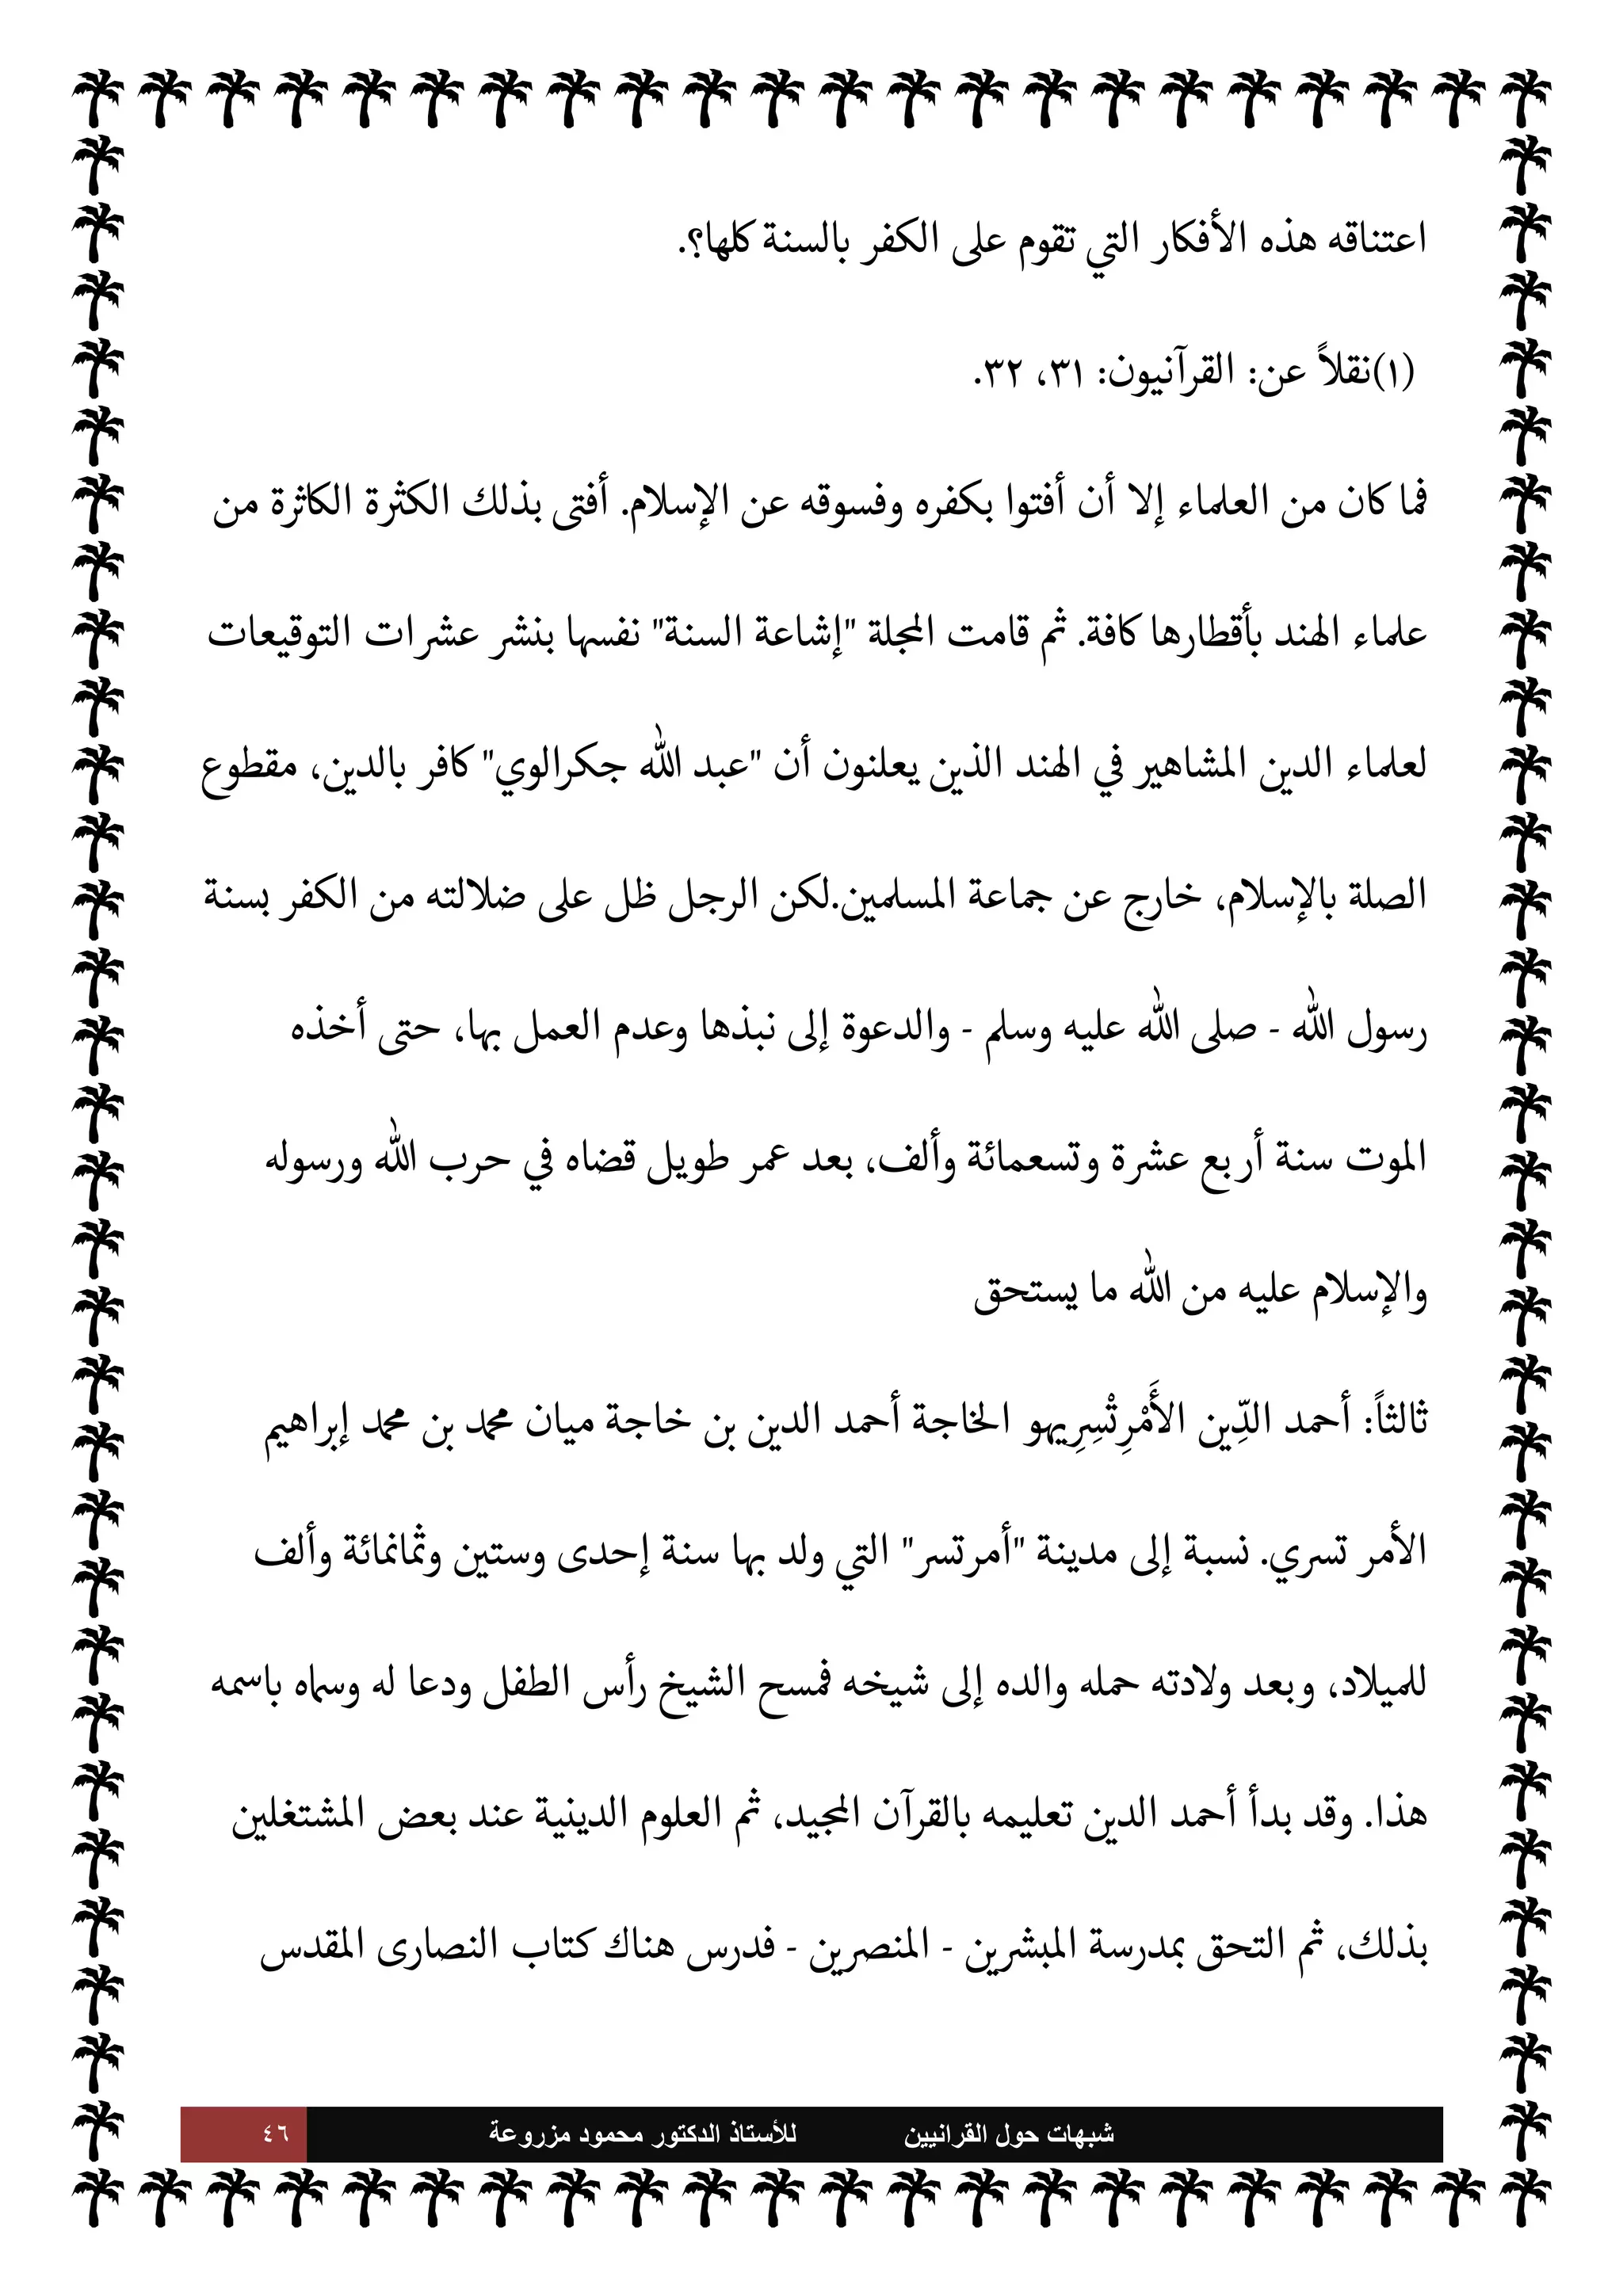 اعتناقه هذه الأفكار التي تقوم على الكفر بالسنة كلها؟.
(١)نقلاً عن: القرآنيون: ٣١، ٣٢.
فما كان من العلماء إلا أن أفتوا بكفره وفسوقه عن الإسلام. أفتى بذلك الكثرة الكاثرة من
علماء الهند بأقطارها كافة. ثم قامت المجلة "إشاعة السنة" نفسها بنشر عشرات التوقيعات
لعلماء الدين المشاهير في الهند الذين يعلنون أن "عبد الله جكرالوي" كافر بالدين، مقطوع
الصلة بالإسلام، خارج عن جماعة المسلمين.لكن الرجل ظل على ضلالته من الكفر بسنة
رسول الله - صلى الله عليه وسلم - والدعوة إلى نبذها وعدم العمل بها، حتى أخذه
الموت سنة أربع عشرة وتسعمائة وألف، بعد عمر طويل قضاه في حرب الله ورسوله
والإسلام عليه من الله ما يستحق
ثالثاً: أحمد الدِّين الأَمْرِتْسِرِيهو الخاجة أحمد الدين بن خاجة ميان محمد بن محمد إبراهيم
الأمر تسري. نسبة إلى مدينة "أمرتسر" التي ولد بها سنة إحدى وستين وثمانمائة وألف
للميلاد، وبعد ولادته حمله والده إلى شيخه فمسح الشيخ رأس الطفل ودعا له وسماه باسمه
هذا. وقد بدأ أحمد الدين تعليمه بالقرآن المجيد، ثم العلوم الدينية عند بعض المشتغلين
بذلك، ثم التحق بمدرسة المبشرين - المنصرين - فدرس هناك كتاب النصارى المقدس
شبهات حول القرانيين للأستاذ الدكتور محمود مزروعة ٤٦